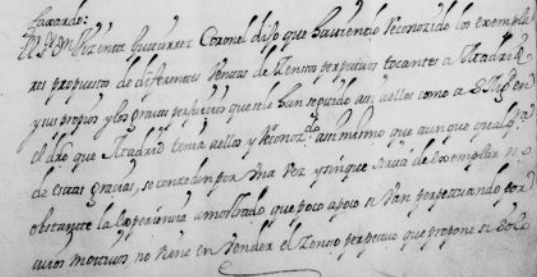 faxardo:
El Sr Dn Vizente Gutierrez Coronel dijo que haviendo Reconozido los exempla
res propuestos de diferentes Ventas de Zensos perpetuos tocantes a Madrid
y sus propios y los graves perjuicios que se le han seguido asi a ellos como a S Magd en
el dro que Madrid tenia a ellos y Reconozdo asimismo que aunque qualqra
de estas grazias, se conceden por Una Vez y sin que sirva de exemplar no
obstante la experiencia a mostrado que poco a poco se Van perpetuando por
cuios motivos no Viene en Vender el Zenso perpetuo que propone se